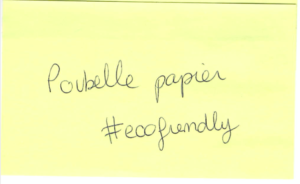 Poubelle papier
#ecofriendly